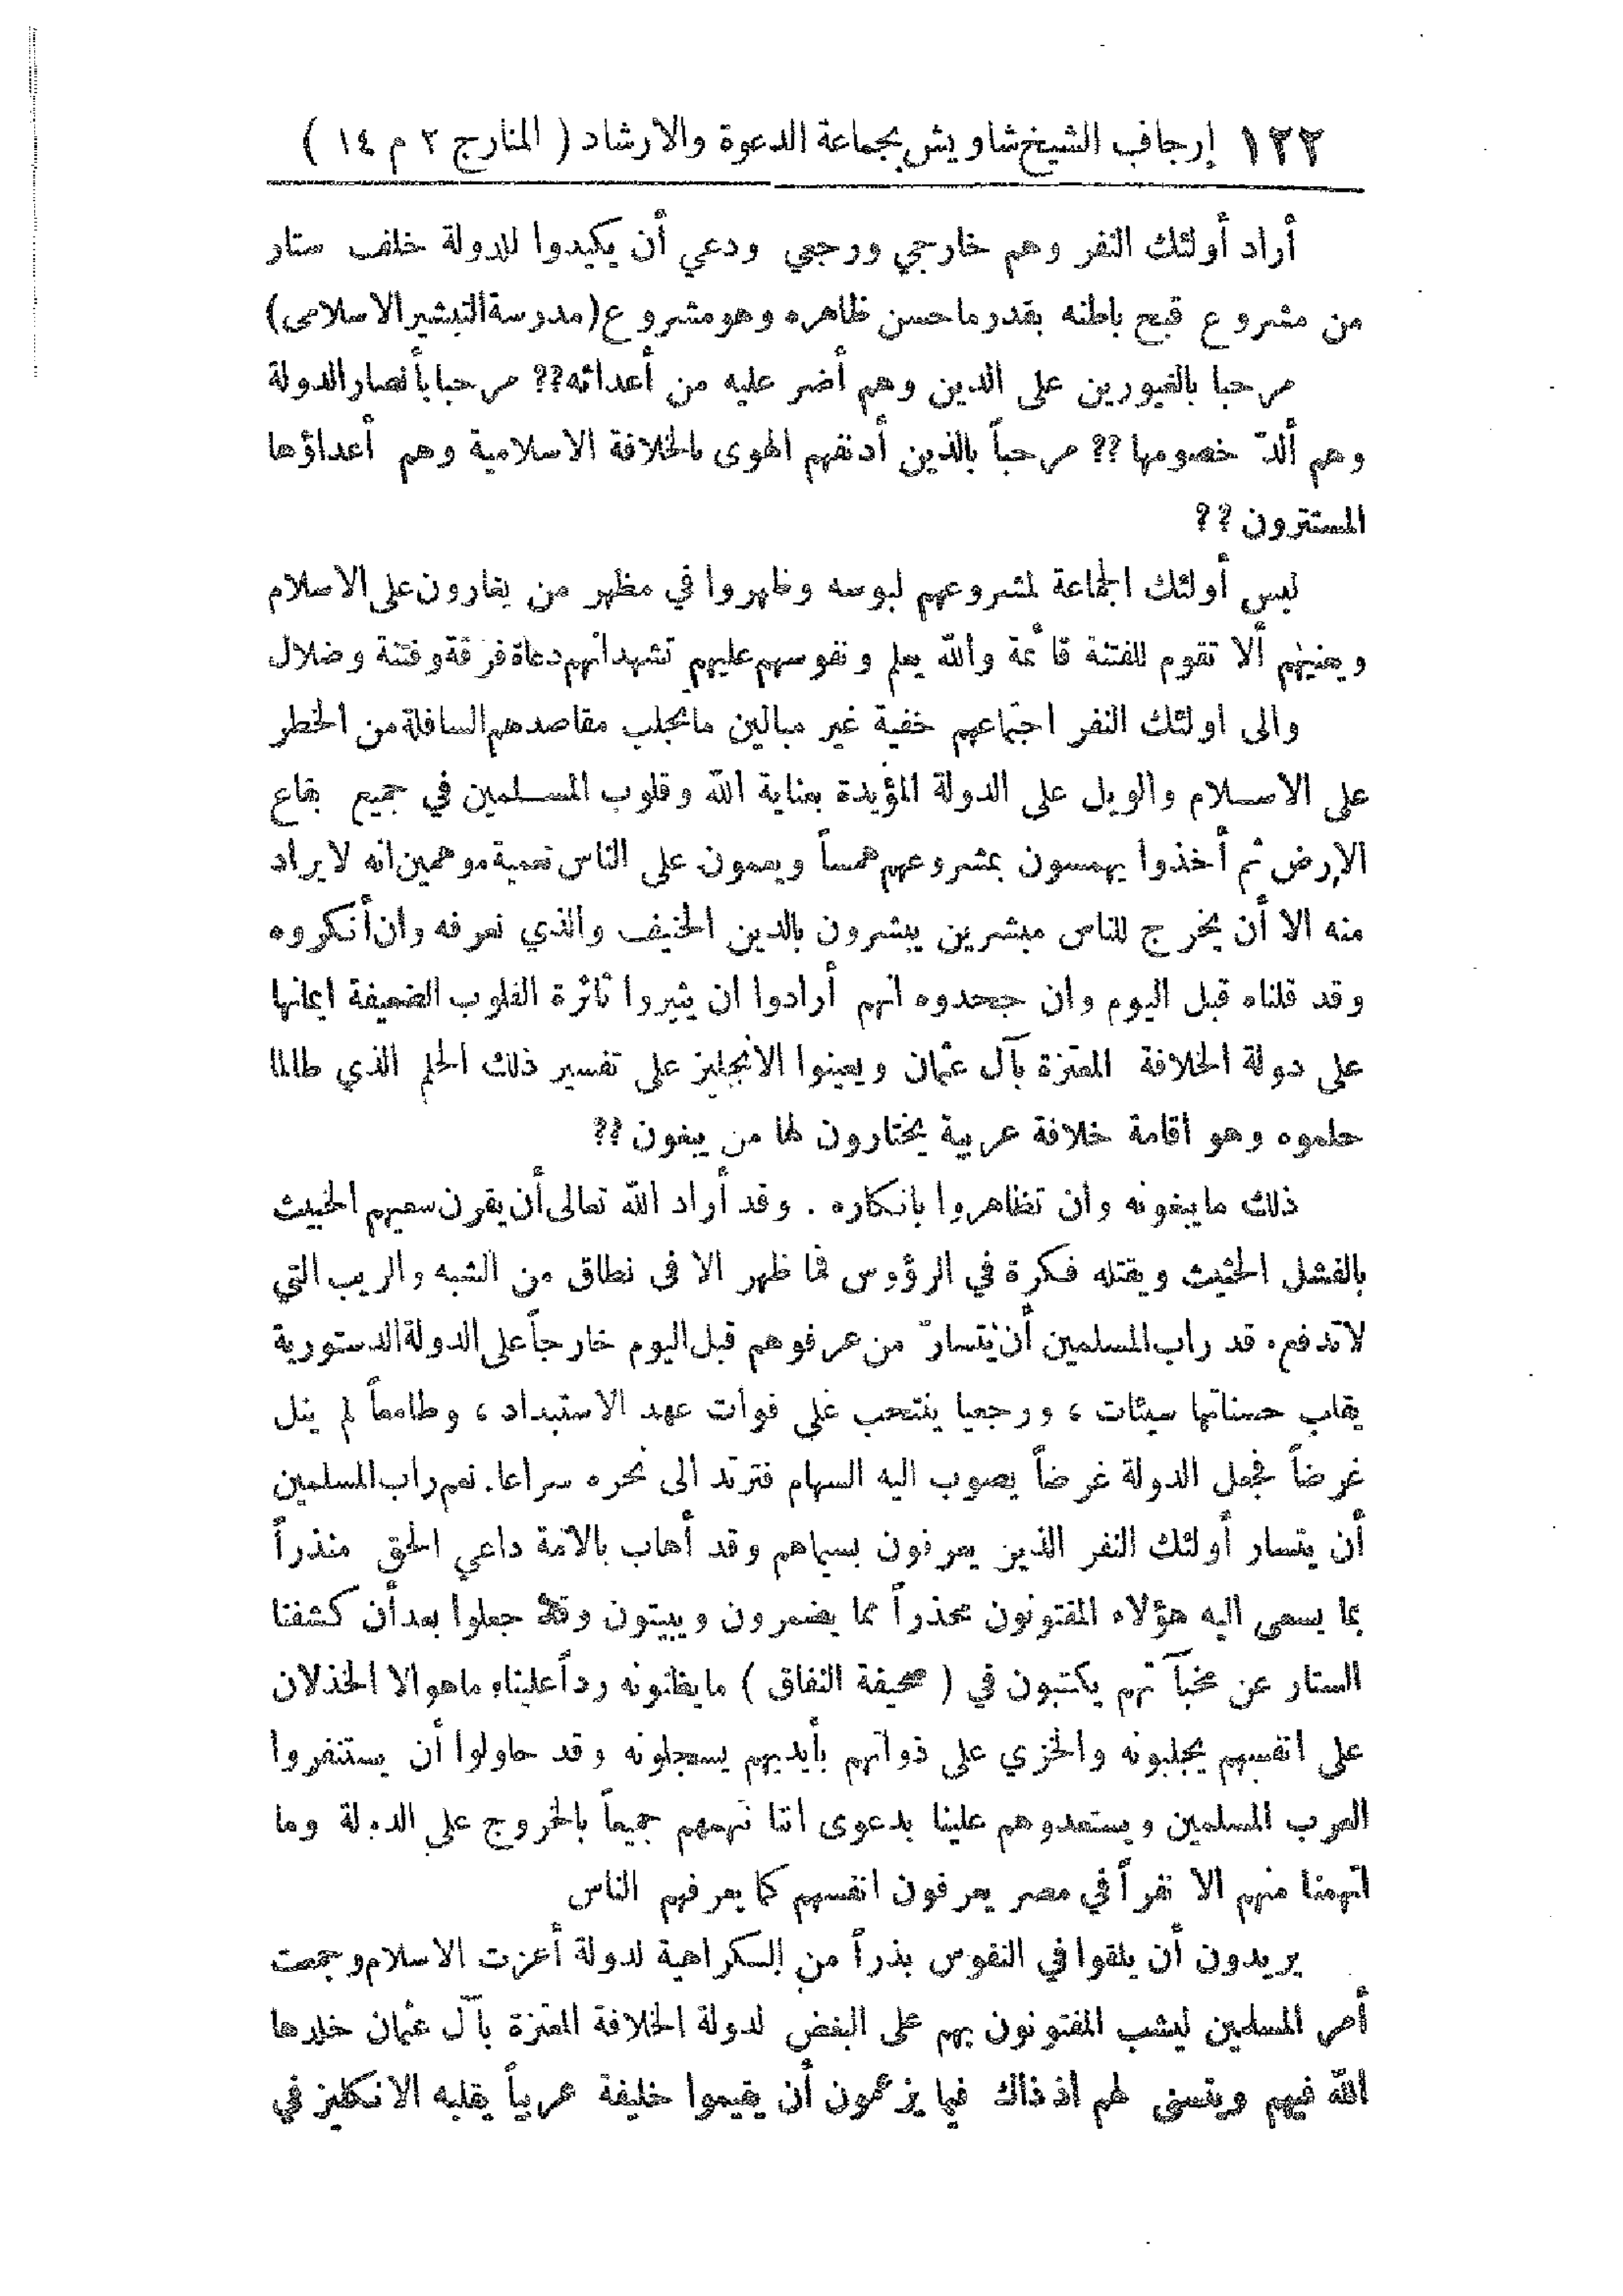 ١٢٢ إرجاف الشيخ شاويش بجماعة الدعوة والارشاد ( المنارج ٢ م ١٤ )
أراد أولئك النفر وهم خارجي ورجعي ودعي أن يكيدوا للدولة خلف ستار
من مشروع قبح باطنه بقدر ما حسن ظاهره وهو مشروع (مدرسة التبشير الاسلامى)
مرحبا بالغيورين على الدين وهم أضر عليه من أعدائه؟؟ مرحبا بأنصار الدولة
وهم ألدّ خصومها ؟؟ مرحباً بالذين أدنفهم الهوى بالخلافة الاسلامية وهم أعداؤها
المستترون ؟؟
لبس أولئك الجماعة لمشروعهم لبوسه وظهروا في مظهر من يغارون على الاسلام
ويعنيهم ألا تقوم للفتنة قائمة والله يعلم ونفوسهم عليهم تشهد انهم دعاة فرقة وفتنة وضلال
والى اولئك النفر اجتماعهم خفية غير مبالين ما تجلب مقاصدهم السافلة من الخطر
على الاسلام والويل على الدولة المؤيدة بعناية الله وقلوب المسلمين في جميع بقاع
الارض ثم أخذوا يهمسون بمشروعهم همساً ويعمون على الناس تعمية موهمين انه لا يراد
منه الا أن يخرج للناس مبشرين يبشرون بالدين الحنيف والذي نعرفه وان أنكروه
وقد قلناه قبل اليوم وان جحدوه انهم أرادوا ان يثيروا ثائرة القلوب الضعيفة ايمانها
على دولة الخلافة المعتزة بآل عثمان ويعينوا الانجليز على تفسير ذلك الحلم الذي طالما
حلموه وهو اقامة خلافة عربية يختارون لها من يبغون ؟؟
ذلك ما يبغونه وان تظاهروا بانكاره . وقد أراد الله تعالى أن يقرن سعيهم الخبيث
بالفشل الحثيث ويقتله فكرة في الرؤوس فما ظهر الا فى نطاق من الشبه والريب التي
لا تدفع. قد راب المسلمين أن يتسارّ من عرفوهم قبل اليوم خارجاً على الدولة الدستورية
يقلب حسناتها سيئات ، ورجعيا ينتحب على فوات عهد الاستبداد ، وطامعاً لم ينل
غرضاً فجعل الدولة غرضاً يصوب اليه السهام فترتد الى نحره سراعا. نعم راب المسلمين
أن يتسار أولئك النفر الذين يعرفون بسيماهم وقد أهاب بالأمة داعي الحق منذراً
بما يسعى اليه هؤلاء المفتونون محذراً مما يضمرون ويبيتون وقد جعلوا بعد أن كشفنا
الستار عن مخبآتهم يكتبون في ( صحيفة النفاق ) ما يظنونه رداً علينا، ما هو الا الخذلان
على انفسهم يجلبونه والخزي على ذواتهم بأيديهم يسجلونه وقد حاولوا أن يستنفروا
العرب المسلمين ويستعدوهم علينا بدعوى اننا نتهمهم جميعاً بالخروج على الدولة وما
اتهمنا منهم الا نفراً في مصر يعرفون انفسهم كما يعرفهم الناس
يريدون أن يلقوا في النفوس بذراً من الكراهية لدولة أعزت الاسلام وجمعت
أمر المسلمين ليشب المفتونون بهم على البغض لدولة الخلافة المعتزة بآل عثمان خلدها
الله فيهم ويتسنى لهم اذ ذاك فيما يزعمون أن يقيموا خليفة عربياً يقلبه الانكليز في